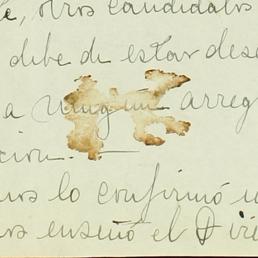 otros candidatos
debe de estar dese
a ningun arreg
cion.
nos lo confirmó u
os enseñó el Dire